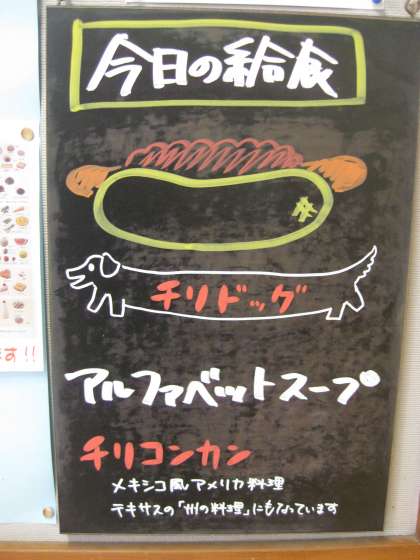 今日の給食
チリドッグ
アルファベットスープ
チリコンカン
メキシコ風アメリカ料理
テキサスの「州の料理」にもなっています
ます!!